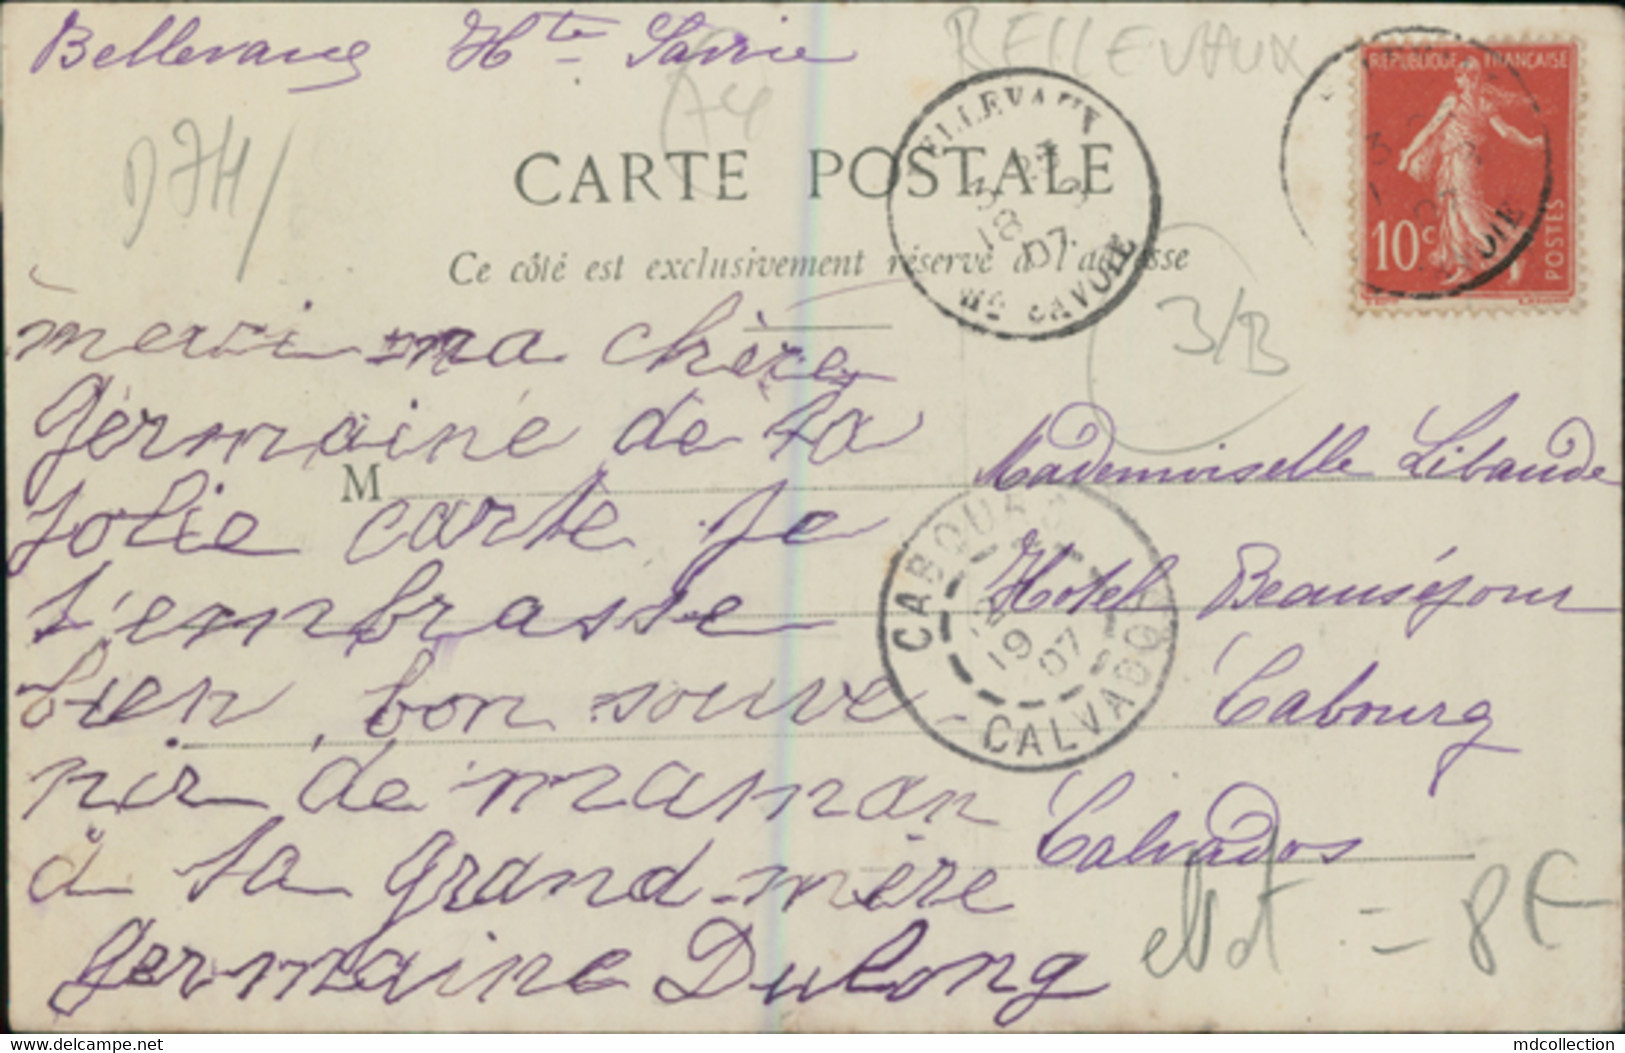 Bellevaux Hte Savoie
BELLEVAUX
74
D74/
CARTE POSTALE
Ce côté est exclusivement réservé à l'adresse
ELLEVAUX
18
07
Hte SAVOIE
REPUBLIQUE FRANÇAISE
10c
POSTES
3/B
merci ma chère
Germaine de ta
jolie carte je
t'embrasse
bien, bon souve
nir de maman
à ta grand-mère
Germaine Dulong
M
Mademoiselle Libaude
Hotel Beauséjour
Cabourg
Calvados
CABOURG
19
07
CALVADOS
= 8F
delcampe.net
mdcollection